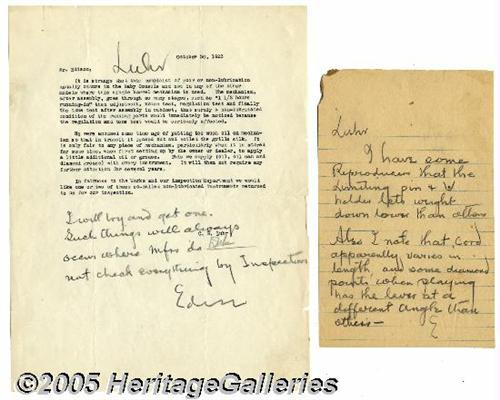 October 30, 1922
Luhr
Mr. Edison,
It is strange that this complaint of poor or non-lubrication
usually occurs in the Baby Console and not in any of the other
models where this single barrel mechanism is used. The mechanism,
after assembly, goes through so many stages, such as "1 1/2 hours
running-in" then adjustment, noise test, regulation test and finally
the tone test after assembly in cabinet, that surely a non-lubricated
condition of the running parts would immediately be noticed because
the regulation and tone test would be seriously affected.
We were accused some time age of putting too much oil on mechan-
ism so that in transit it passed out and soiled the grille silk. It
is only fair to any piece of mechanism, particularly when it is stored
for some time, when first setting up by the owner or dealer, to apply
a little additional oil or grease. Both we supply (oil, oil can and
grease) with every instrument. It will then not require any
further attention for several years.
In fairness to the Works and our Inspection Department we would
like one or two of these so-called non-lubricated instruments returned
to us for our inspection.
I will try and get one.
Such things will always
occur where Mfrs do
not check everything by Inspection
Edison
Luhr
I have some
Reproducers that the
Limiting pin &
holder lets weight
down lower than others
Also I note that Cord
apparently varies in
length, and some diamond
points when playing
has the lever at a
different angle than
others—
E
©2005 HeritageGalleries